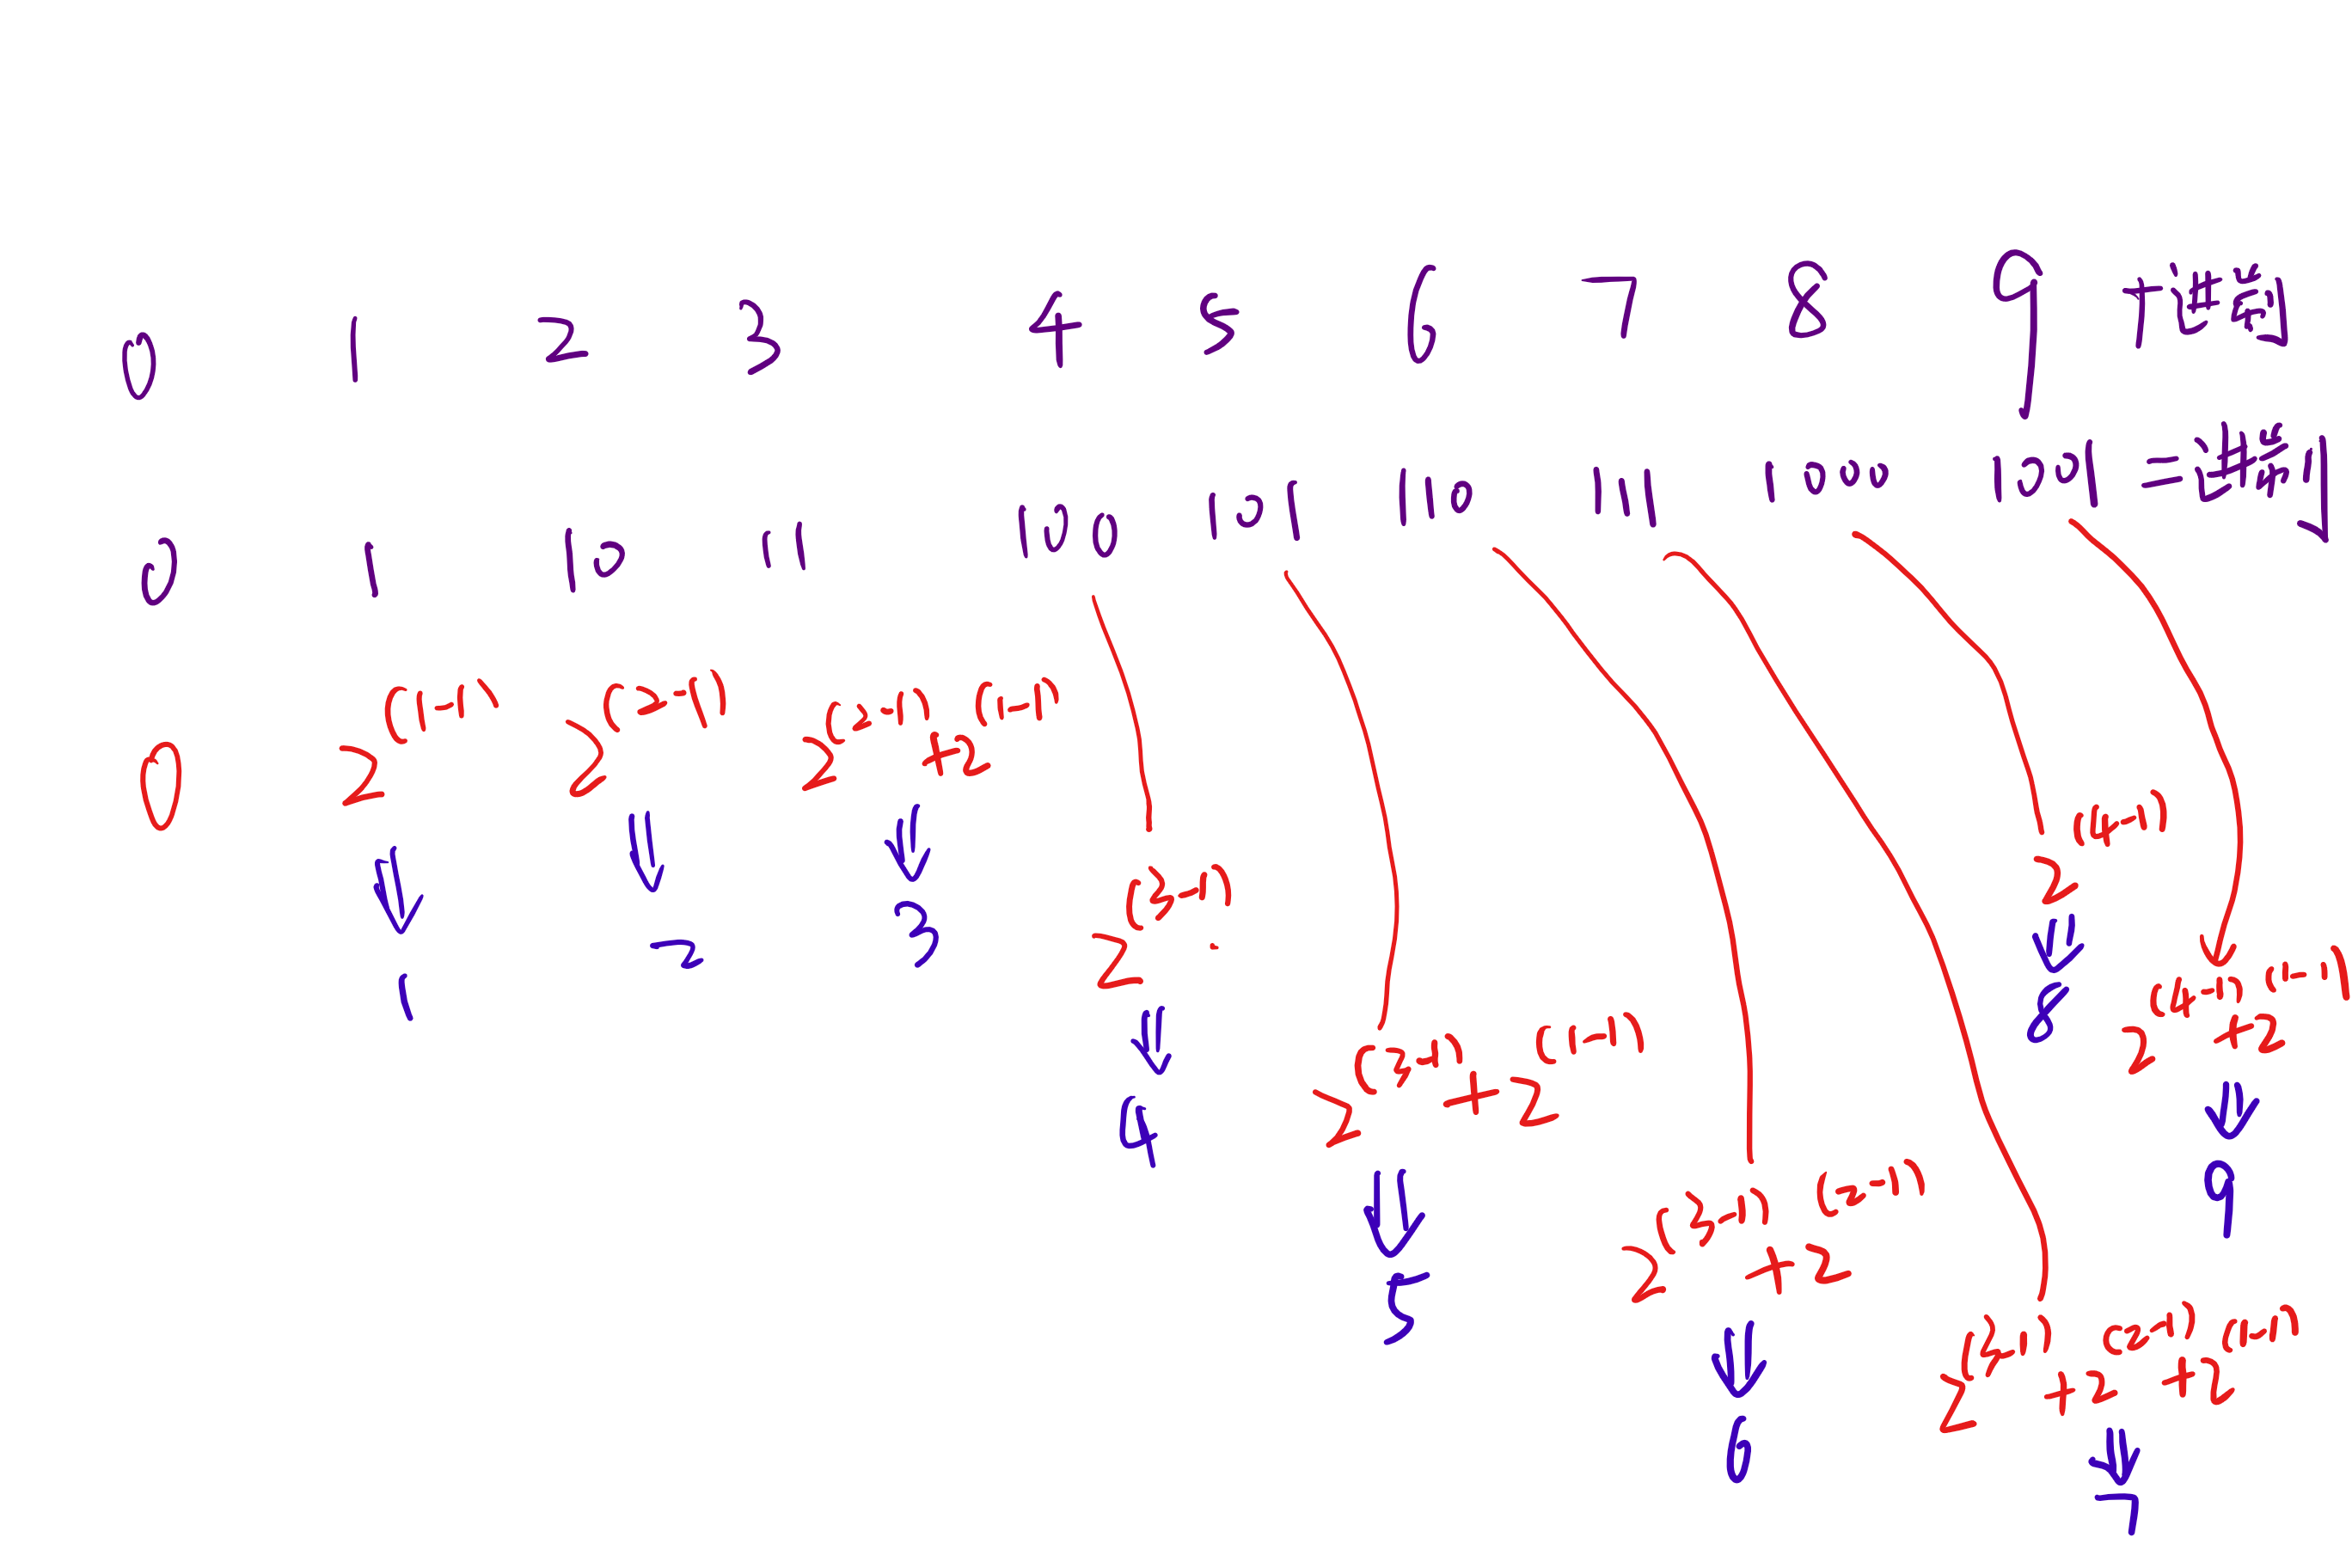 0 1 2 3 4 5 6 7 8 9 十进制
0 1 10 11 100 101 110 111 1000 1001 二进制
0 2^(1-1) 2^(2-1) 2^(2-1)+2^(1-1)
1 2 3
2^(3-1)
4
2^(3-1)+2^(1-1)
5
2^(3-1)+2^(2-1)
6
2^(3-1)+2^(2-1)+2^(1-1)
7
2^(4-1)
8
2^(4-1)+2^(1-1)
9